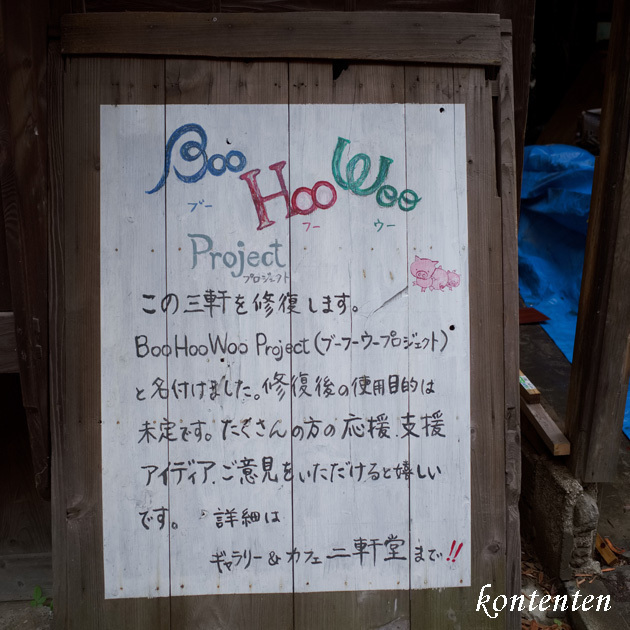 Boo Hoo Woo
ブー フー ウー
Project
プロジェクト
この三軒を修復します。
BooHooWoo Project(ブーフーウープロジェクト)
と名付けました。修復後の使用目的は
未定です。たくさんの方の応援、支援
アイディア、ご意見をいただけると嬉しい
です。 詳細は
ギャラリー&カフェ二軒堂まで!!
kontenten